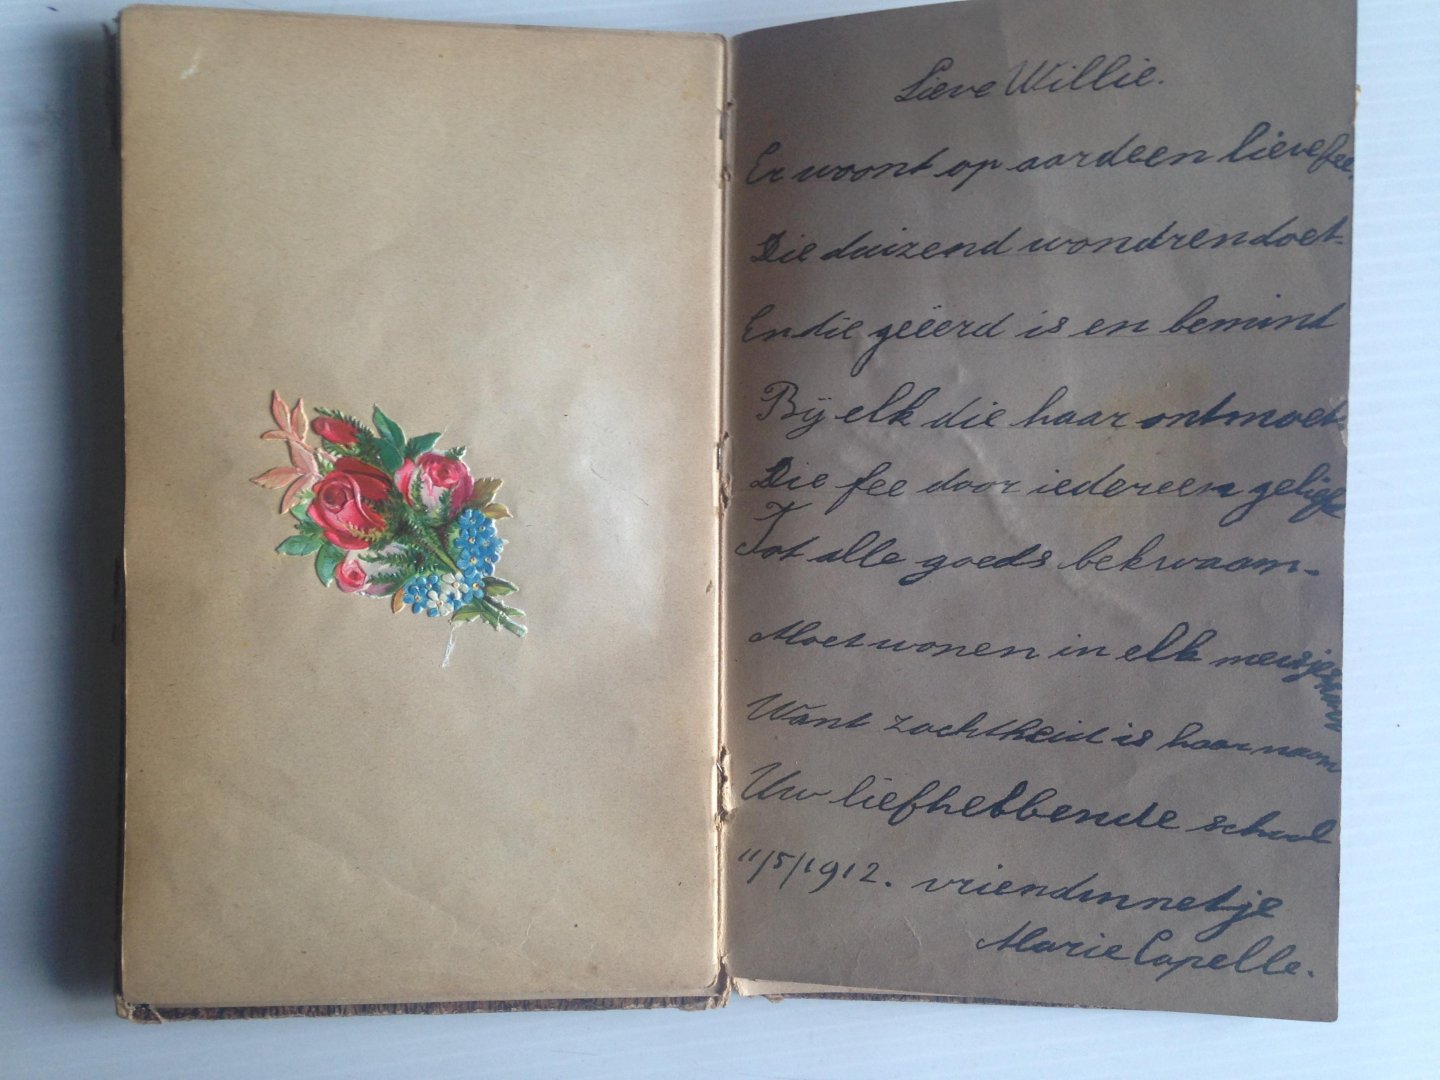 Lieve Willie.
Er woont op aard een lieve fee,
Die duizend wondren doet.
En die geëerd is en bemind
Bij elk die haar ontmoet.
Die fee door iedereen geliefd
Tot alle goeds bekwaam.
Moet wonen in elk meisjeshart
Want zachtheid is haar naam
Uw liefhebbende school
11/5/1912. vriendinnetje
Marie Capelle.